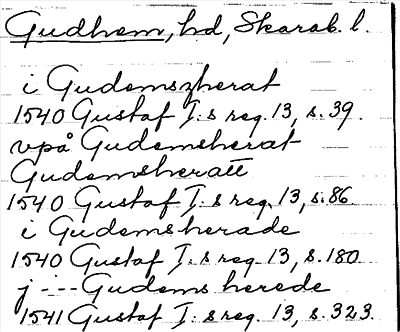 Gudhem, hd, Skarab. l.
i Gudemszherat
1540 Gustaf I:s reg. 13, s. 39.
vpå Gudemsherat
Gudemsheratt
1540 Gustaf I:s reg. 13, s. 86
i Gudemsherade
1540 Gustaf I:s reg. 13, s. 180
j --- Gudems herede
1541 Gustaf I:s reg. 13, s. 323